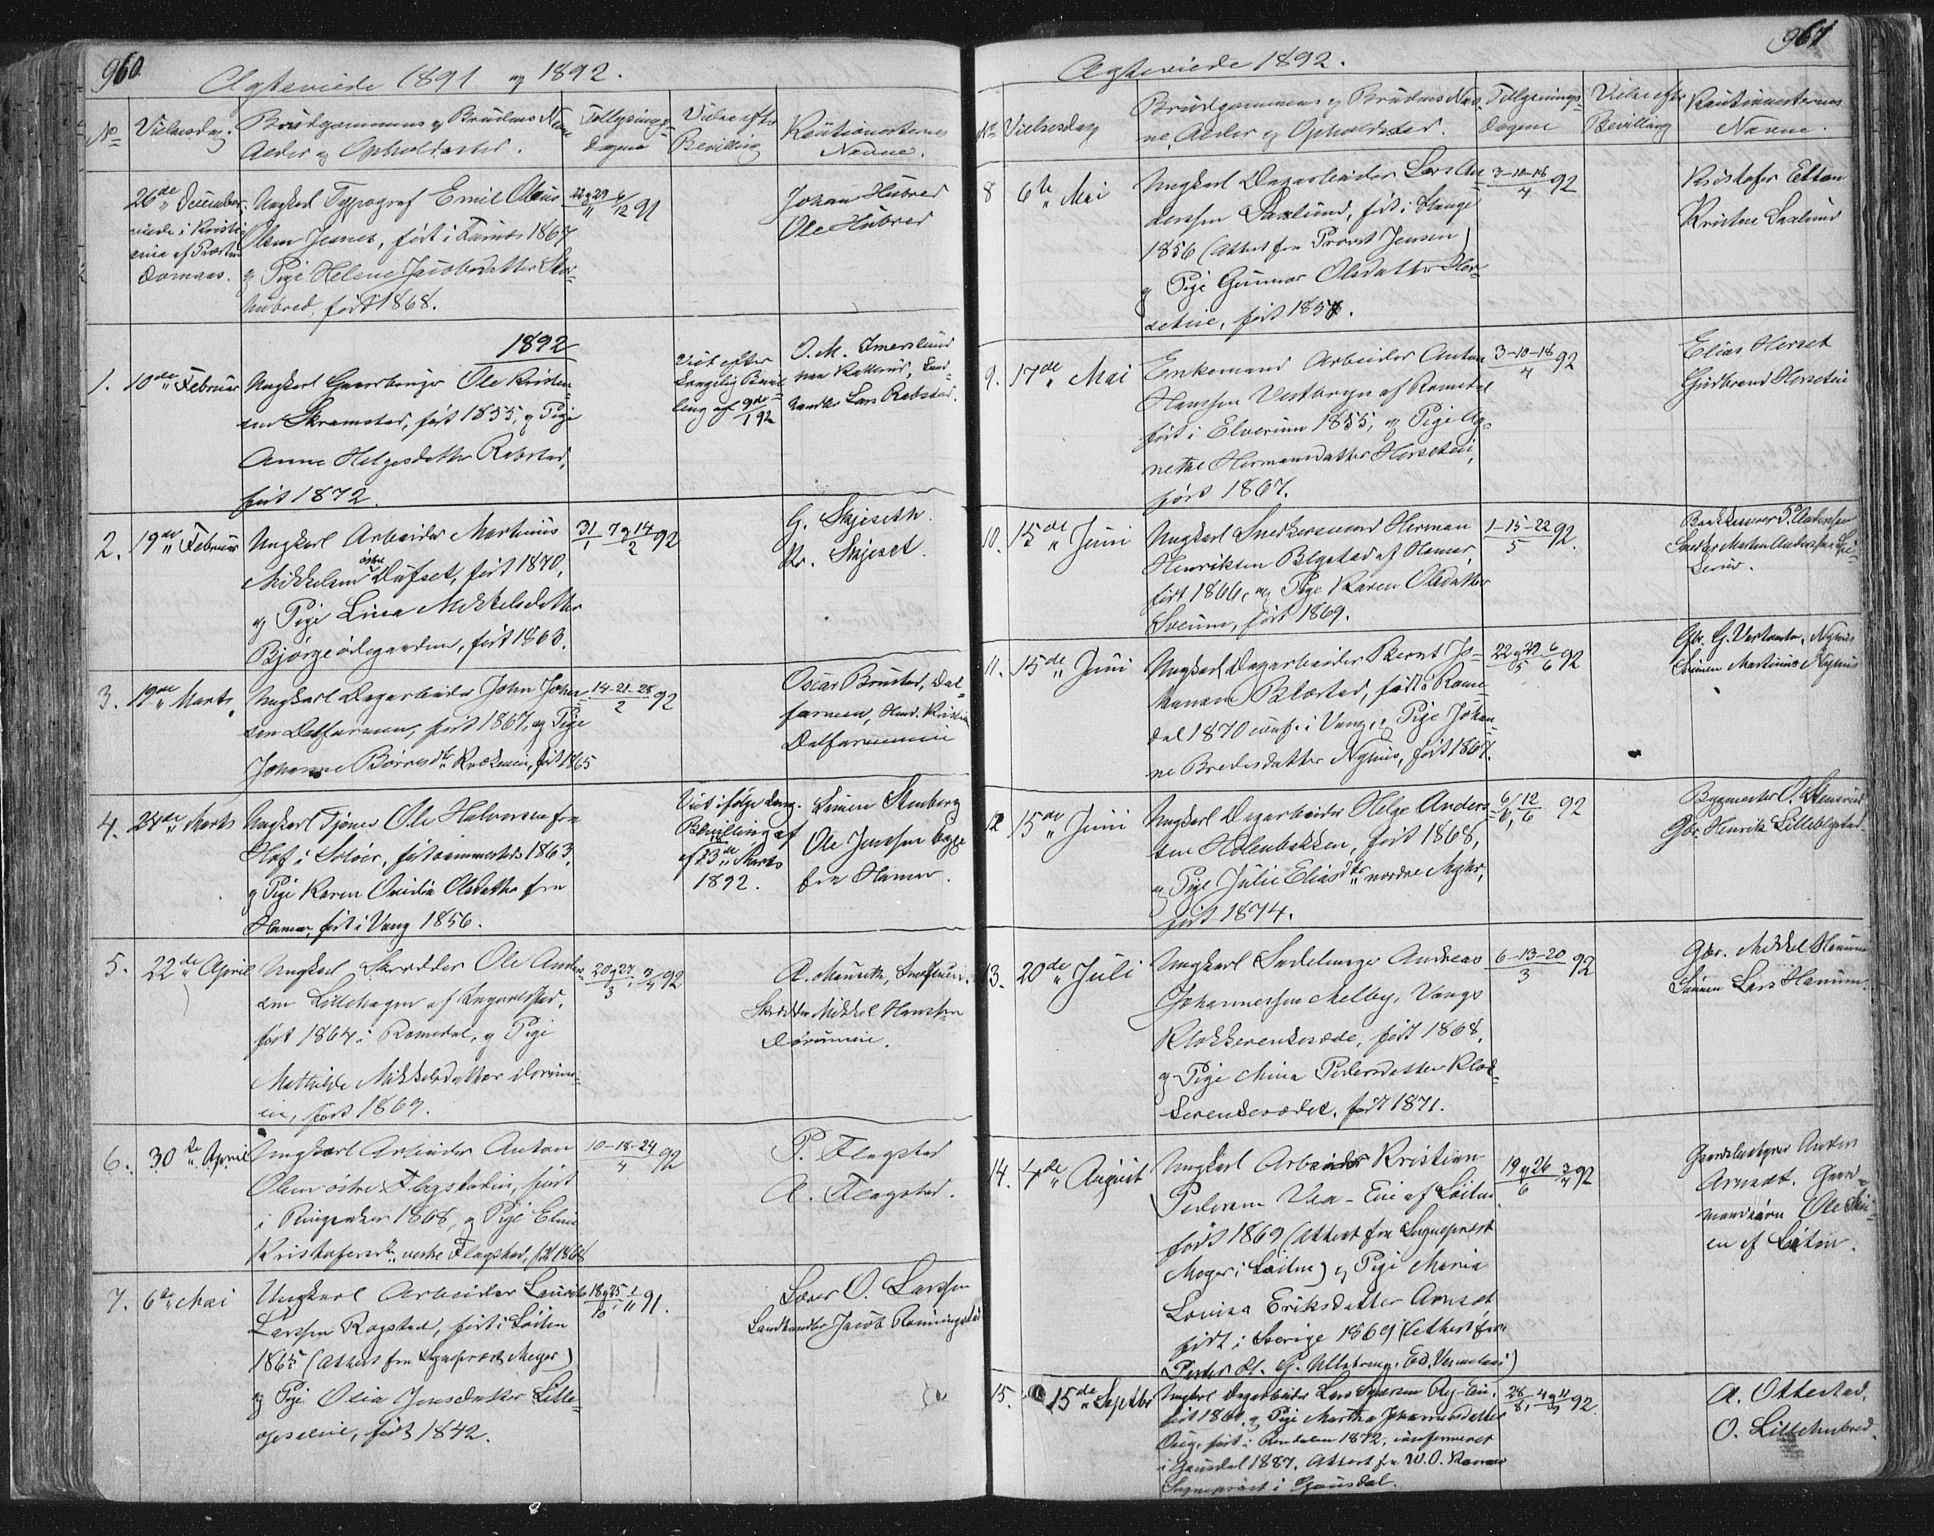 960.
Ægteviede 1891 og 1892.
No Vielsesdag. Brudgommens og Brudens Navne Alder og Opholdssted. Tillysnings-dagene Vielse efter Bevilling Kautionisternes Navne.
26de December viede i Kristi
Ungkarl Typograf Emil Olaus
Olsen Jesnes, født i Furnes 1867
og Pige Helene Jacobsdatter
hubred, født 1868.
22 og 29/11 6/12 91
Johan Hubred
Ole Hubred
1892
1. 10de Februar
Ungkarl Gaardbruger Ole Kristen-
sen Skramstad, født 1855, og Pige
Anne Helgesdatter Rabstad,
født 1872.
Viet efter
Kongelig Bevil-
ling af 9de/1 92
O. M. Imerslund
Lars Rabstad.
2. 19de Februar
Ungkarl Arbeider Martinus
Mikkelsen østre Dufset, født 1870,
og Pige Lina Mikkelsdatter
Bjørgeødegaarden, født 1863.
31/1 7 og 14/2 92
G. Skjeseth.
Kr. Skjeset.
3. 19de Marts
Ungkarl Dagarbeider John Johan-
sen Dalfarmen, født 1867, og Pige
Johanne Børresdtr. født 1865
14-21-28/2 92
Oscar Brustad, Dal-
farmen, Kristian
Dalfarmeneie
4. Marts
Ungkarl Tjener Ole Halvorsen fra
Hof i Solør, født sammesteds 1863,
og Pige Karen Cecilia Olsdatter fra
Hamar, født i Vang 1856.
Viet ifølge kong.
Bevilling af
af 23de Marts
1892.
Simen Stenberg
Ole Jenssen Bygge
fra Hamar.
5. 22de April
Ungkarl Skrædder Ole Anders-
sen Lillehagen af
født 1867 i Romedal, og Pige
Mathilde Mikkelsdatter Dørum-
eie, født 1869.
20 og 27/3, 3/4 92
Skrædder Mikkel Hanssen
Dørumeie.
6. 30te April
Ungkarl Arbeider Anton
Olsen østre Flagstadeie, født
i Ringsaker 1868, og Pige Eline
Kristofersdtr. vestre Flagstad, født 1868
10-18-24/4 92
P. Flagstad
A. Flagstad.
7. 6te Mai
Ungkarl Arbeider Laurits
Larssen Rogstad, født i Løiten
1865 (Attest fra Sognepræst Meyer)
og Pige Olia Jensdatter Lille-
opsaleie, født 1842.
18 og 25/10 1/11 91.
Lærer O. Larssen
Landhandler Jacob Rønningstad
961
Ægteviede 1892.
No Vielsesdag Brudgommens og Brudens Navne, Alder og Opholdssted. Tillysnings-dagene Vielse efter Bevilling Kautionisternes Navne.
8 6te Mai
Ungkarl Dagarbeider Lars An-
derssen Saxlund, født i Stange
1856 (Attest fra Provst Jensen)
og Pige Gunnor Olsdatter Her-
seteie, født 1857.
3-10-18/4 92
Kristofer Elton
Kristen Saxlund
9. 17de Mai
Enkemand Arbeider Anton
Hanssen Vestbryn af Romedal
født i Elverum 1855, og Pige Ag-
nethe Hermansdatter Herseteie,
født 1867.
3-10-18/4 92
Elias Herset
Gudbrand Herseteie
10. 15de Juni
Ungkarl Snedkersvend Herman
Henriksen Blystad af Hamar,
født 1866, og Pige Karen Olsdatter
Sveum, født 1869.
1-15-22/5 92.
Snedker Morten Anderssen
11. 15de Juni
Ungkarl Dagarbeider Bernt Jo-
hansen Blæstad, født i Rome-
dal 1870 conf. i Vang, og Pige Johan-
ne Bredesdatter Nyhus, født 1867.
22 og 29/5 6/6 92
Simen Martinus Nyhus
12 15de Juni
Ungkarl Dagarbeider Helge Anders-
sen Holenbakken, født 1868,
og Pige Julie Eliasdtr. nordre Myhr,
født 1874.
6/6, 12/6 92
Bygmester O. Stensrud
Gbr. Henrik Lilleblystad
13. 20de Juli
Ungkarl Sadelmager Andreas
Johannessen Melby, Vangs
Klokkerenkesæde, født 1868,
og Pige Mina Pedersdatter Klok-
kerenkesædet, født 1871.
6-13-20/3 92
Gbr. Mikkel Hanum
Simen Lars Hanum.
14. 4de August
Ungkarl Arbeider Kristian
Pedersen Vea-Eie af Løiten
født 1869 (Attest fra Sognepræst
Meyer i Løiten) og Pige Maria
Lovisa Eriksdatter Arnset
født i Sverige 1869 (Attest fra
Pastor G. Ullstrøng, Ed, Vermeland)
19 og 26/6 3/7 92
Gaardbestyrer Anders
Arnset. Gaard-
mandsøn Ole
en af Løiten.
15. 15de Septbr
Ungkarl Dagarbeider Lars Ry-Eie,
født 186 og Pige Martha Johannesdatter
født i Rendalen 1872, confirmeret
i Gausdal 1887. Attest fra W. O.
Sognepræst i Gausdal.
28/8, 4 og 11/9 92.
A. Ottestad.
O. Lillehubred.